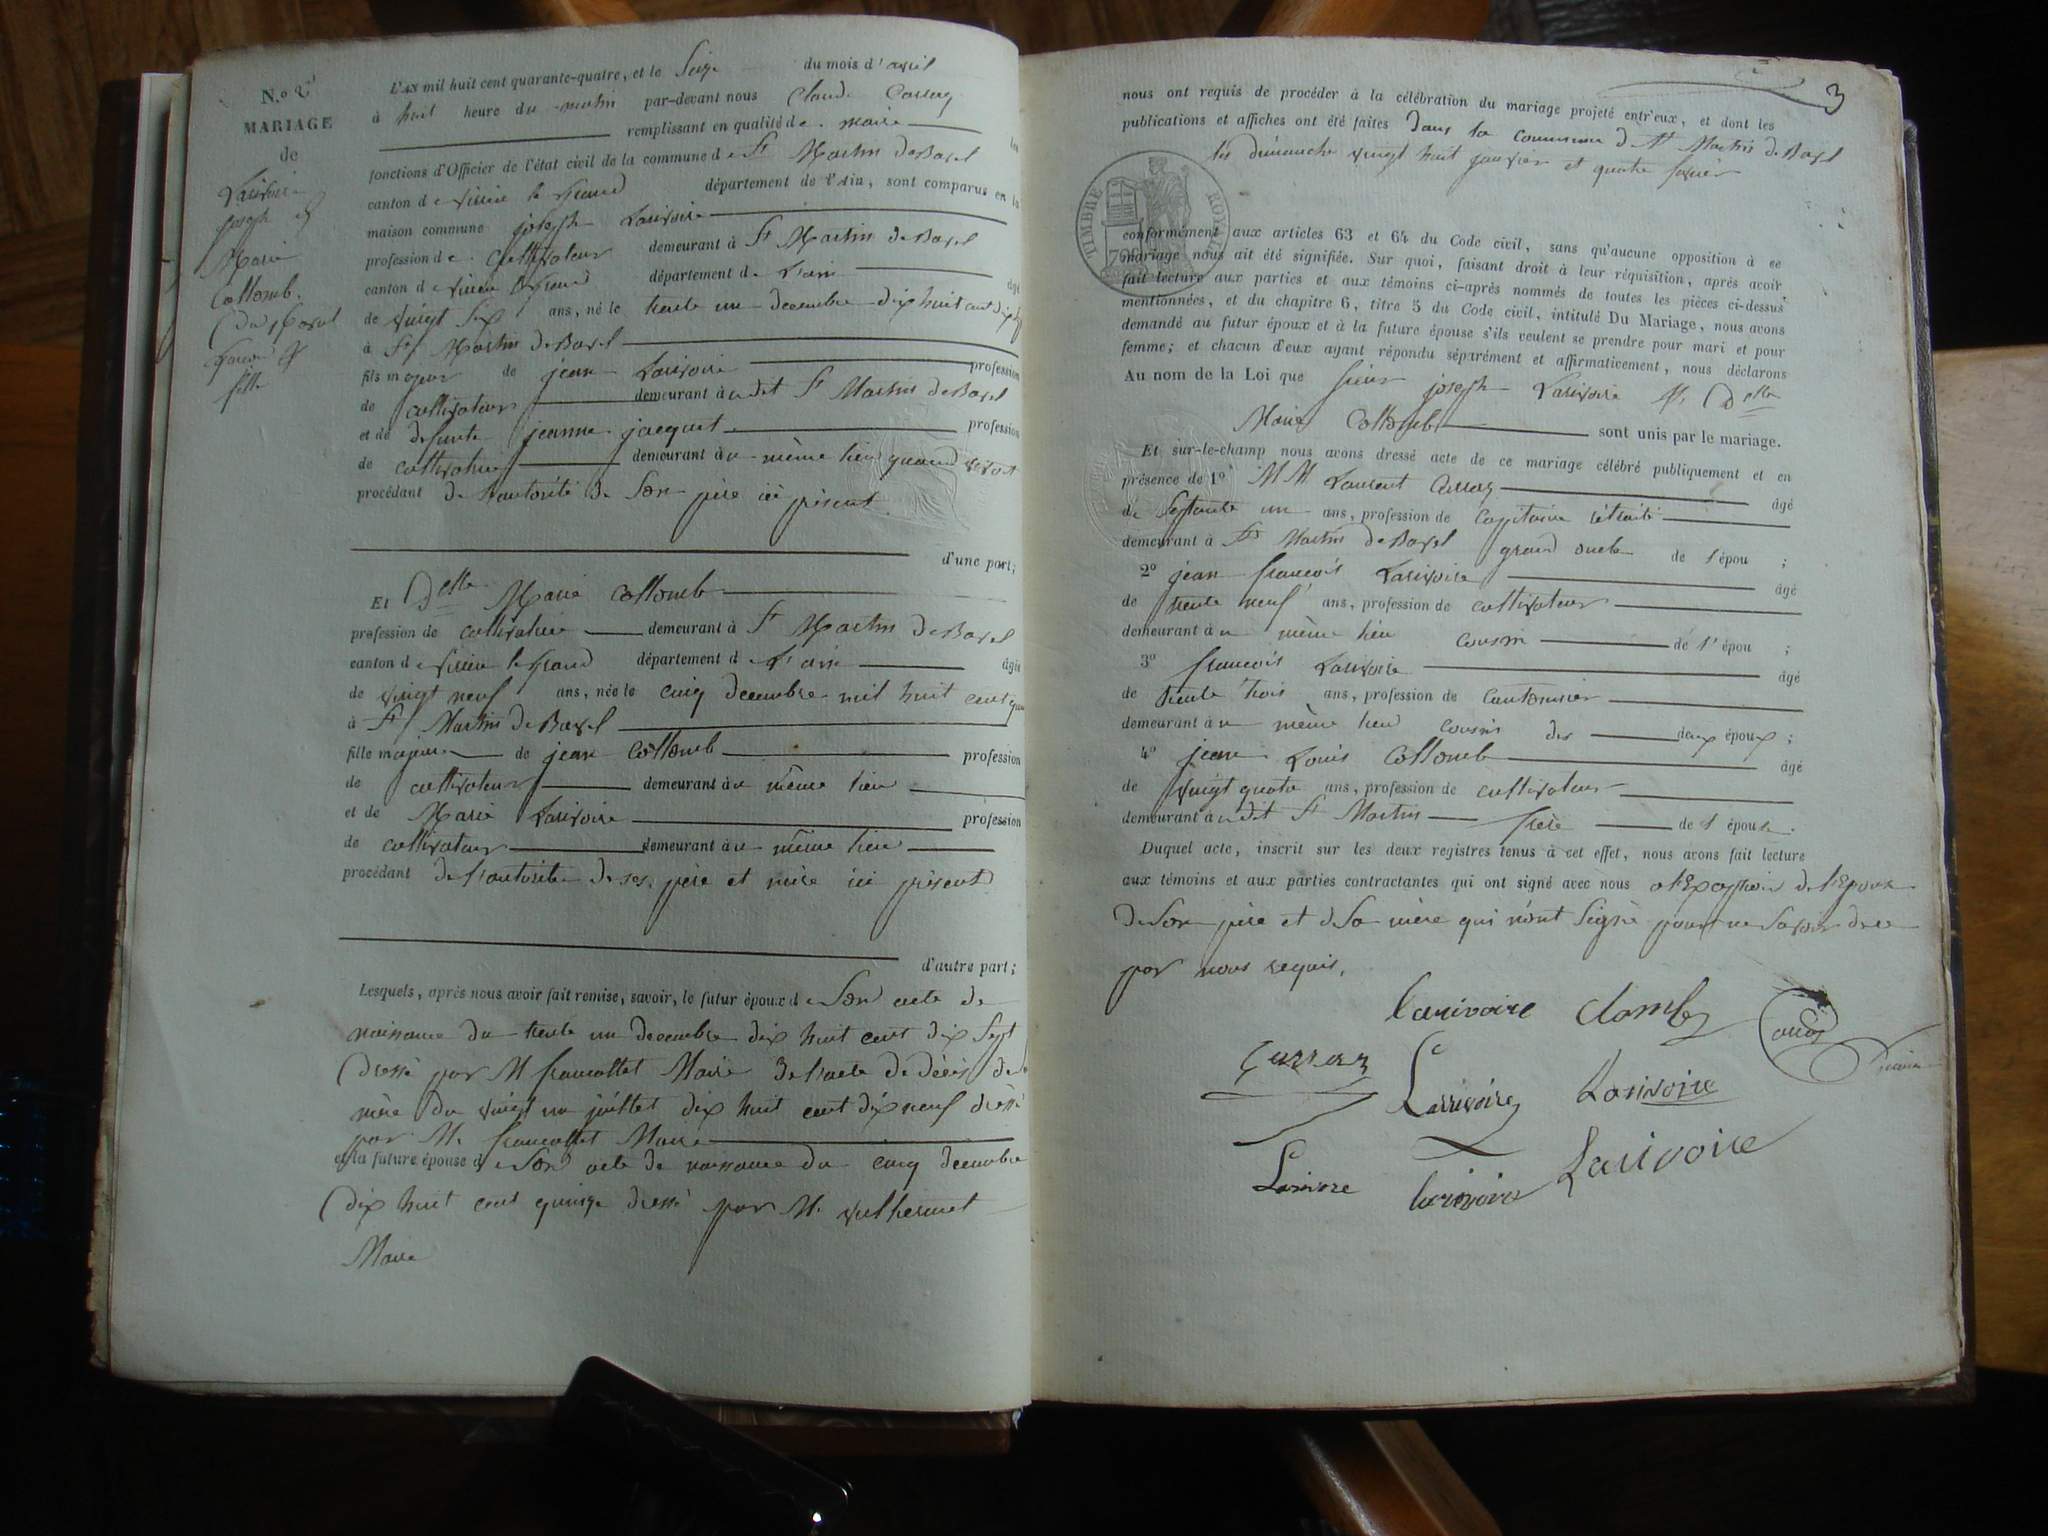 N.o 2
MARIAGE
de
Larivoire
joseph et
Marie
Collomb.
garcon et
fille
L'AN mil huit cent quarante-quatre, et le Seize du mois d'avril
à huit heure du matin par-devant nous Claude
remplissant en qualité de maire les
fonctions d'Officier de l'état civil de la commune de St Martin de Bavel
canton de virieu le grand département de l'Ain, sont comparus en la
maison commune joseph Larivoire
profession de cultivateur demeurant à St Martin de Bavel
canton de virieu le grand département de L'ain âgé
de vingt six ans, né le trente un decembre dix huit cent dix sept
à St Martin de Bavel
fils majeur de jean Larivoire profession
de cultivateur demeurant au dit St Martin de Bavel
et de defunte jeanne jacquet profession
de cultivatrice demeurant au même lieu quand vivoit
procédant de l'autorité de Son père ici présent.
d'une part;
Et Delle Marie Collomb
profession de cultivatrice demeurant à St Martin de Bavel
canton de virieu le grand département de L'ain âgée
de vingt neuf ans, née le cinq decembre mil huit cent
à St Martin de Bavel
fille majeure de jean Collomb profession
de cultivateur demeurant au même lieu
et de Marie Larivoire profession
de cultivateur demeurant au même lieu
procédant de l'autorité de ses père et mère ici présent
d'autre part;
Lesquels, après nous avoir fait remise, savoir, le futur époux de Son acte de
naissance du trente un decembre dix huit cent dix Sept
dressé par M francollet Maire de l'acte de décès de
mère du vingt un juillet dix huit cent dix neuf dressé
par M. francollet Maire
et la future épouse de Son acte de naissance du cinq decembre
dix huit cent quinze dressé par M. vulliermet
Maire
3
nous ont requis de procéder à la célébration du mariage projeté entr'eux, et dont les
publications et affiches ont été faites dans la commune de St Martin de Bavel
les dimanche vingt huit janvier et quatre fevrier
TIMBRE ROYAL
conformément aux articles 63 et 64 du Code civil, sans qu'aucune opposition à ce
mariage nous ait été signifiée. Sur quoi, faisant droit à leur réquisition, après avoir
fait lecture aux parties et aux témoins ci-après nommés de toutes les pièces ci-dessus
mentionnées, et du chapitre 6, titre 5 du Code civil, intitulé Du Mariage, nous avons
demandé au futur époux et à la future épouse s'ils veulent se prendre pour mari et pour
femme; et chacun d'eux ayant répondu séparément et affirmativement, nous déclarons
Au nom de la Loi que sieur joseph Larivoire et Delle
Marie Collomb sont unis par le mariage.
Et sur-le-champ nous avons dressé acte de ce mariage célébré publiquement et en
présence de 1o MM Laurent âgé
de Septante un ans, profession de capitaine retraité
demeurant à St Martin de Bavel grand oncle de l'épou ;
2o jean francois Larivoire âgé
de trente neuf ans, profession de cultivateur
demeurant au même lieu cousin de l'épou ;
3o francois Larivoire âgé
de trente trois ans, profession de cantonnier
demeurant au même lieu cousin des deux époux;
4o jean Louis Collomb âgé
de vingt quatre ans, profession de cultivateur
demeurant au dit St Martin frère de l'épouse.
Duquel acte, inscrit sur les deux registres tenus à cet effet, nous avons fait lecture
aux témoins et aux parties contractantes qui ont signé avec nous a l'Exception de l'Epouse
de Son père et de Sa mère qui n'ont Signé pour ne Savoir de ce
par nous requis.
Larivoire Clomb
Larivoire Larivoire
Larivoire Larivoire